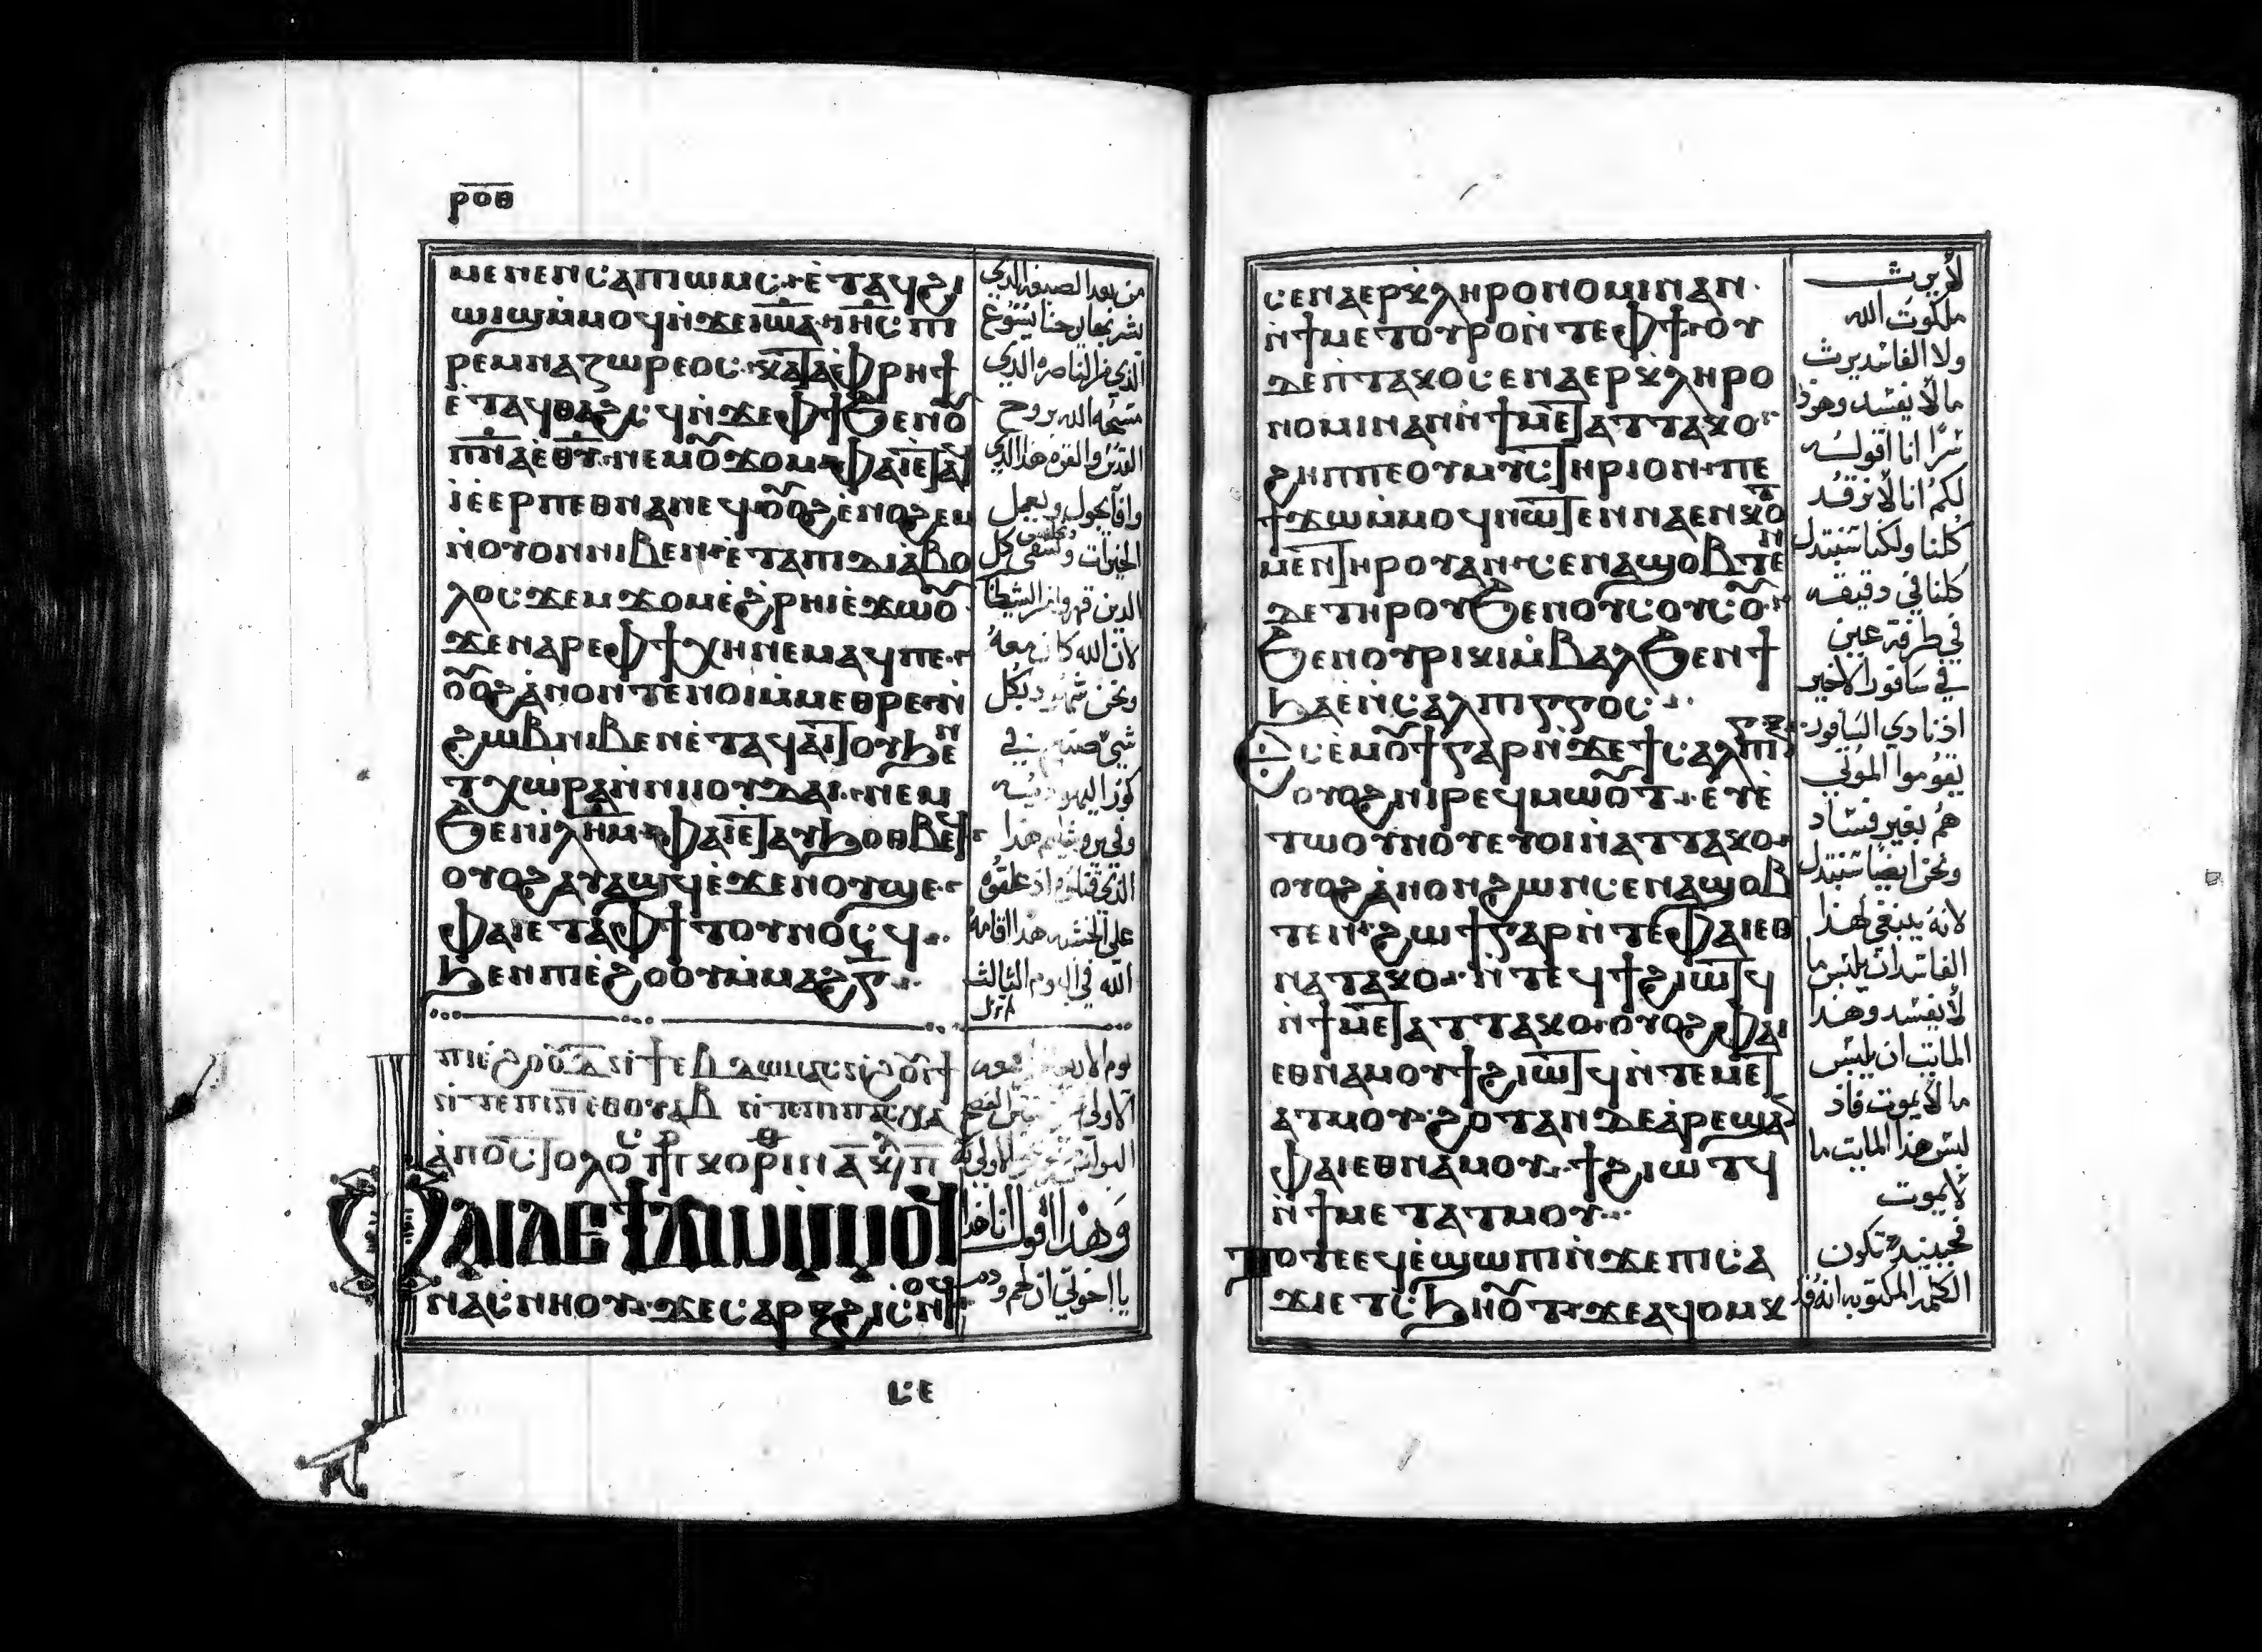 ⲣⲟⲑ
ⲙⲉⲛⲉⲛⲥⲁⲡⲓⲱⲙⲥ ⲉ̀ⲧⲁϥϩⲓ
ⲱⲓϣⲙ̀ⲙⲟϥⲛ̀ϫⲉⲓⲱⲁ ⲓⲏⲥ ⲡⲓ
ⲣⲉⲙⲛⲁⲍⲱⲣⲉⲟⲥ ⲕⲁⲧⲁⲫⲣⲏϯ
ⲉ̀ⲧⲁϥⲑⲁϩⲥϥⲛ̀ϫⲉⲫϯϧⲉⲛⲟ
ⲡⲛⲁⲉⲑⲩ ⲛⲉⲙⲟϫⲟⲙ ⲫⲁⲓⲉⲧⲁϥ
ⲓ̀ⲉ̀ⲉⲣⲡⲉⲑⲛⲁⲛⲉϥ ⲟⲟϩ ⲉ̀ⲛⲟϩⲉⲙ
ⲛ̀ⲟⲩⲟⲛⲛⲓⲃⲉⲛ ⲉ̀ⲧⲁⲡⲓⲇⲓⲁ̀ⲃⲟ
ⲗⲟⲥϫⲉⲙϫⲟⲙⲉ̀ϩⲣⲏⲓⲉ̀ϫⲱⲟ
ϫⲉⲛⲁⲣⲉⲫϯⲭⲏⲛⲉⲙⲁϥⲡⲉ
ⲟⲟϩⲁ̀ⲛⲟⲛⲧⲉⲛⲟⲓⲙ̀ⲙⲉⲑⲣⲉ ⲛ̀
ϩⲱⲃⲛⲓⲃⲉⲛⲉ̀ⲧⲁϥⲁⲓⲧⲟⲩϧⲉⲛ
ⲧⲭⲱⲣⲁⲛ̀ⲛⲓⲓⲟⲩⲇⲁⲓ ⲛⲉⲙ
ϧⲉⲛⲓⲗⲏⲙ ⲫⲁⲓⲉⲧⲁⲩϧⲟⲑⲃⲉϥ
ⲟⲩⲟϩⲁⲩⲁϣϥⲉ̀ϫⲉⲛⲟⲩϣⲉ
ⲫⲁⲓⲉⲧⲁⲫϯⲧⲟⲩⲛⲟⲥϥ
ϧⲉⲛⲡⲓⲉ̀ϩⲟⲟⲩⲙ̀ⲙⲁϩⲅ
ⲫⲁⲓⲇⲉϯϫⲱⲙ̀ⲙⲟϥ
ⲛⲁⲥⲛⲏⲟⲩ ϫⲉⲥⲁⲣⲝϩⲓⲥⲛⲟϥ
ⲥⲉ
من بعد الصبغة الذي
بشر بها يوحنا يسوع
الذي من الناصره الذي
مسحه الله بروح
القدس والقوة هذا الذي
وافا يجول ويعمل
الخيرات ويشفى كل
الذين قهروا من الشيطان
لان الله كان معه
ونحن شهود بكل
شي صنعه في
كورة اليهوديه
وفي يروشليم هذا
الذي قتلوه اذ علقوه
على الخشبه هذا اقامه
الله في اليوم الثالث
وهذا اقول انا هذا
يا اخوتي ان لحم ودم
ⲥⲉⲛⲁⲉⲣⲕ̀ⲗⲏⲣⲟⲛⲟⲙⲓⲛⲁⲛ
ⲛ̀ϯⲙⲉⲧⲟⲩⲣⲟⲛ̀ⲧⲉⲫϯ ⲟⲩ
ⲇⲉⲡ̀ⲧⲁⲕⲟⲥⲉⲛⲁⲉⲣⲕ̀ⲗⲏⲣⲟ
ⲛⲟⲙⲓⲛⲁⲛⲛ̀ϯⲙⲉⲧⲁⲧⲧⲁⲕⲟ
ϩⲏⲡⲡⲉⲟⲩⲙⲩⲥⲧⲏⲣⲓⲟⲛ ⲡⲉ
ϯϫⲱⲙ̀ⲙⲟϥⲛⲱⲧⲉⲛⲛⲁⲉⲛⲕⲟⲧ
ⲙⲉⲛⲧⲏⲣⲟⲩⲁⲛ ⲥⲉⲛⲁϣⲟⲃⲧⲉⲛ
ⲇⲉⲧⲏⲣⲟⲩϧⲉⲛⲟⲩⲥⲟⲩⲥⲟ
ϧⲉⲛⲟⲩⲣⲓⲕⲓⲙ̀ⲃⲁⲗϧⲉⲛϯ
ϧⲁⲉ̀ⲛ̀ⲥⲁⲗⲡⲓⲅⲅⲟⲥ
ⲉⲥⲉ̀ⲙⲟϯⲅⲁⲣⲛ̀ϫⲉϯⲥⲁⲗⲡⲓⲅⲝ
ⲟⲩⲟϩⲛⲓⲣⲉϥⲙⲱⲟⲧ ⲉⲩⲉ̀
ⲧⲱⲟⲩⲛⲟⲩⲉⲩⲟⲓⲛ̀ⲁⲧⲧⲁⲕⲟ
ⲟⲩⲟϩⲁ̀ⲛⲟⲛϩⲱⲛⲥⲉⲛⲁϣⲟⲃ
ⲧⲉⲛ ϩⲱϯⲅⲁⲣⲛ̀ⲧⲉⲫⲁⲓⲉⲑ
ⲛⲁⲧⲁⲕⲟ ⲛ̀ⲧⲉϥϯϩⲓⲱⲧϥ
ⲛ̀ϯⲙⲉⲧⲁⲧⲧⲁⲕⲟ ⲟⲩⲟϩⲫⲁⲓ
ⲉⲑⲛⲁⲙⲟⲩϯϩⲓⲱⲧϥⲛ̀ⲧⲉⲙⲉⲧ
ⲁⲧⲙⲟⲩ ϩⲟⲧⲁⲛⲇⲉⲁ̀ⲣⲉϣⲁ
ⲫⲁⲓⲉⲑⲛⲁⲙⲟⲩ ϯϩⲓⲱⲧϥ
ⲛ̀ϯⲙⲉⲧⲁⲧⲙⲟⲩ
ⲧⲟⲧⲉⲉϥⲉ̀ϣⲱⲡⲓⲛ̀ϫⲉⲡⲓⲥⲁ
ϫⲓⲉⲧⲥϧⲏⲟⲧ ϫⲉⲁϥⲟⲙⲕ
لا يرث
ملكوت الله
ولا الفاسد يرث
ما لا يفسد وهوذا
سرا انا اقوله
لكم انا لا نرقد
كلنا ولكنا سنتبدل
كلنا في دقيقه
في طرفة عين
في سافور الاخير
اذ نادي السافور
يقوموا الموتي
هم بغير فساد
ونحن ايضا سنتبدل
لانه ينبغي لهذا
الفاسد ان يلبس ما
لا يفسد وهذا
المايت ان يلبس
ما لا يموت فاذ
لبس هذا المايت ما
لا يموت
فحينيذ تكون
الكلمه المكتوبه انه قد